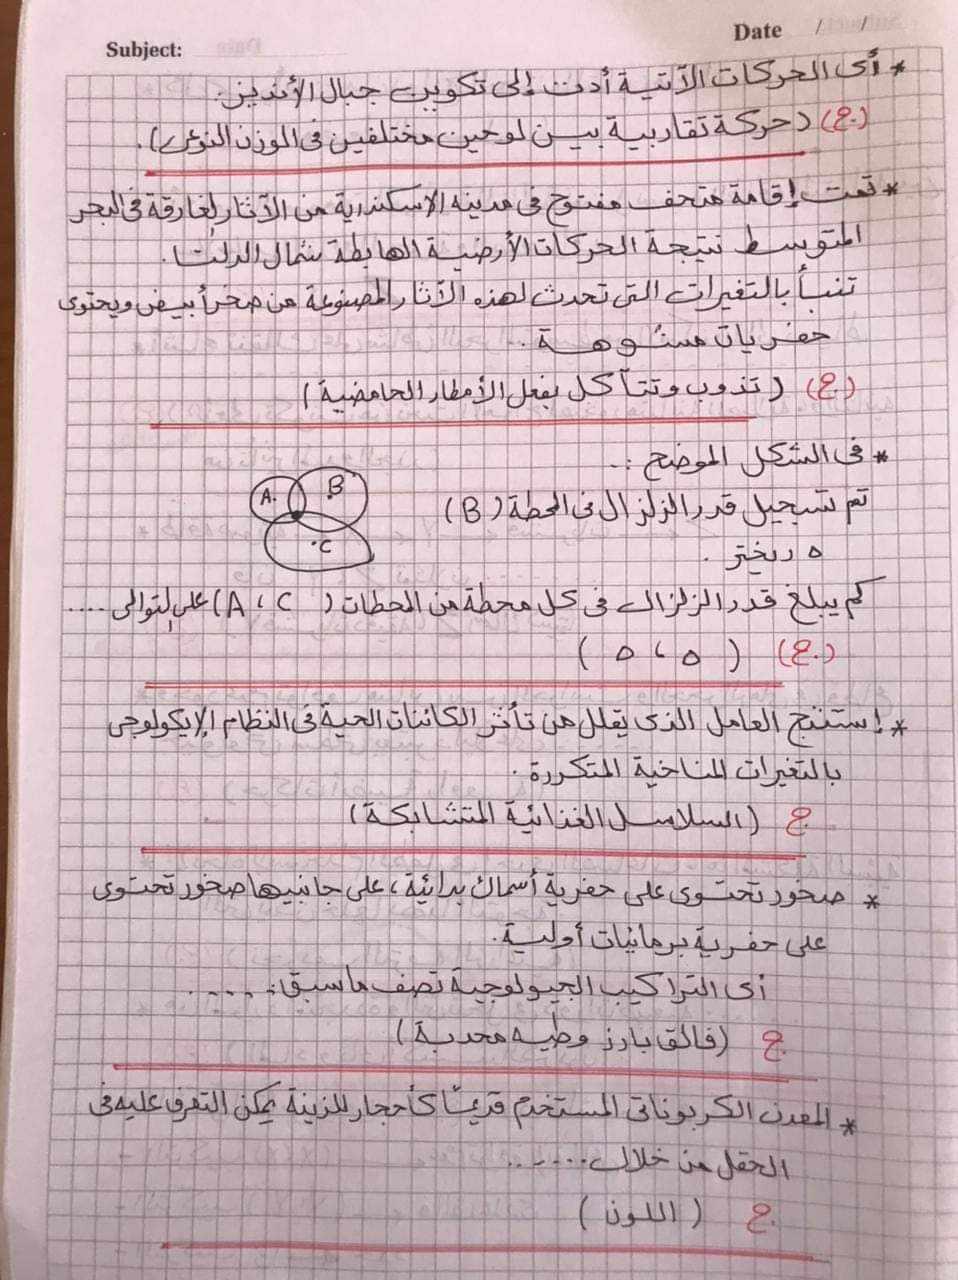 Date / /
Subject:
* أى الحركات الآتية أدت إلى تكوين جبال الأنديز.
(ج) (حركة تقاربية بين لوحين مختلفين فى الوزن النوعى).
* تمت إقامة متحف مفتوح فى مدينه الاسكندرية من الآثار الغارقة فى البحر
المتوسط نتيجة الحركات الأرضية الهابطة شمال الدلتا.
تنبأ بالتغيرات التى تحدث لهذه الآثار المصنوعة من صخر أبيض ويحتوى
حفريات مشوهة.
(ج) (تذوب وتتآكل بفعل الأمطار الحامضية)
* فى الشكل الموضح :.
A. B
تم تسجيل قدر الزلزال فى المحطة (B)
.C
٥ ريختر.
كم يبلغ قدر الزلزال فى كل محطة من المحطات (A ، C) على التوالى ....
(ج) (٥ ، ٥)
* إستنتج العامل الذى يقلل من تأثر الكائنات الحية فى النظام الإيكولوجى
بالتغيرات المناخية المتكررة.
ج (السلاسل الغذائية المتشابكة)
* صخور تحتوى على حفرية أسماك بدائية، على جانبيها صخور تحتوى
على حفرية برمائيات أولية.
أى التراكيب الجيولوجية تصف ما سبق.....
ج (فالق بارز وطيه محدبة)
* المعدن الكربوناتى المستخدم قديمًا كأحجار للزينة يمكن التعرف عليه فى
الحقل من خلال......
ج (اللون)